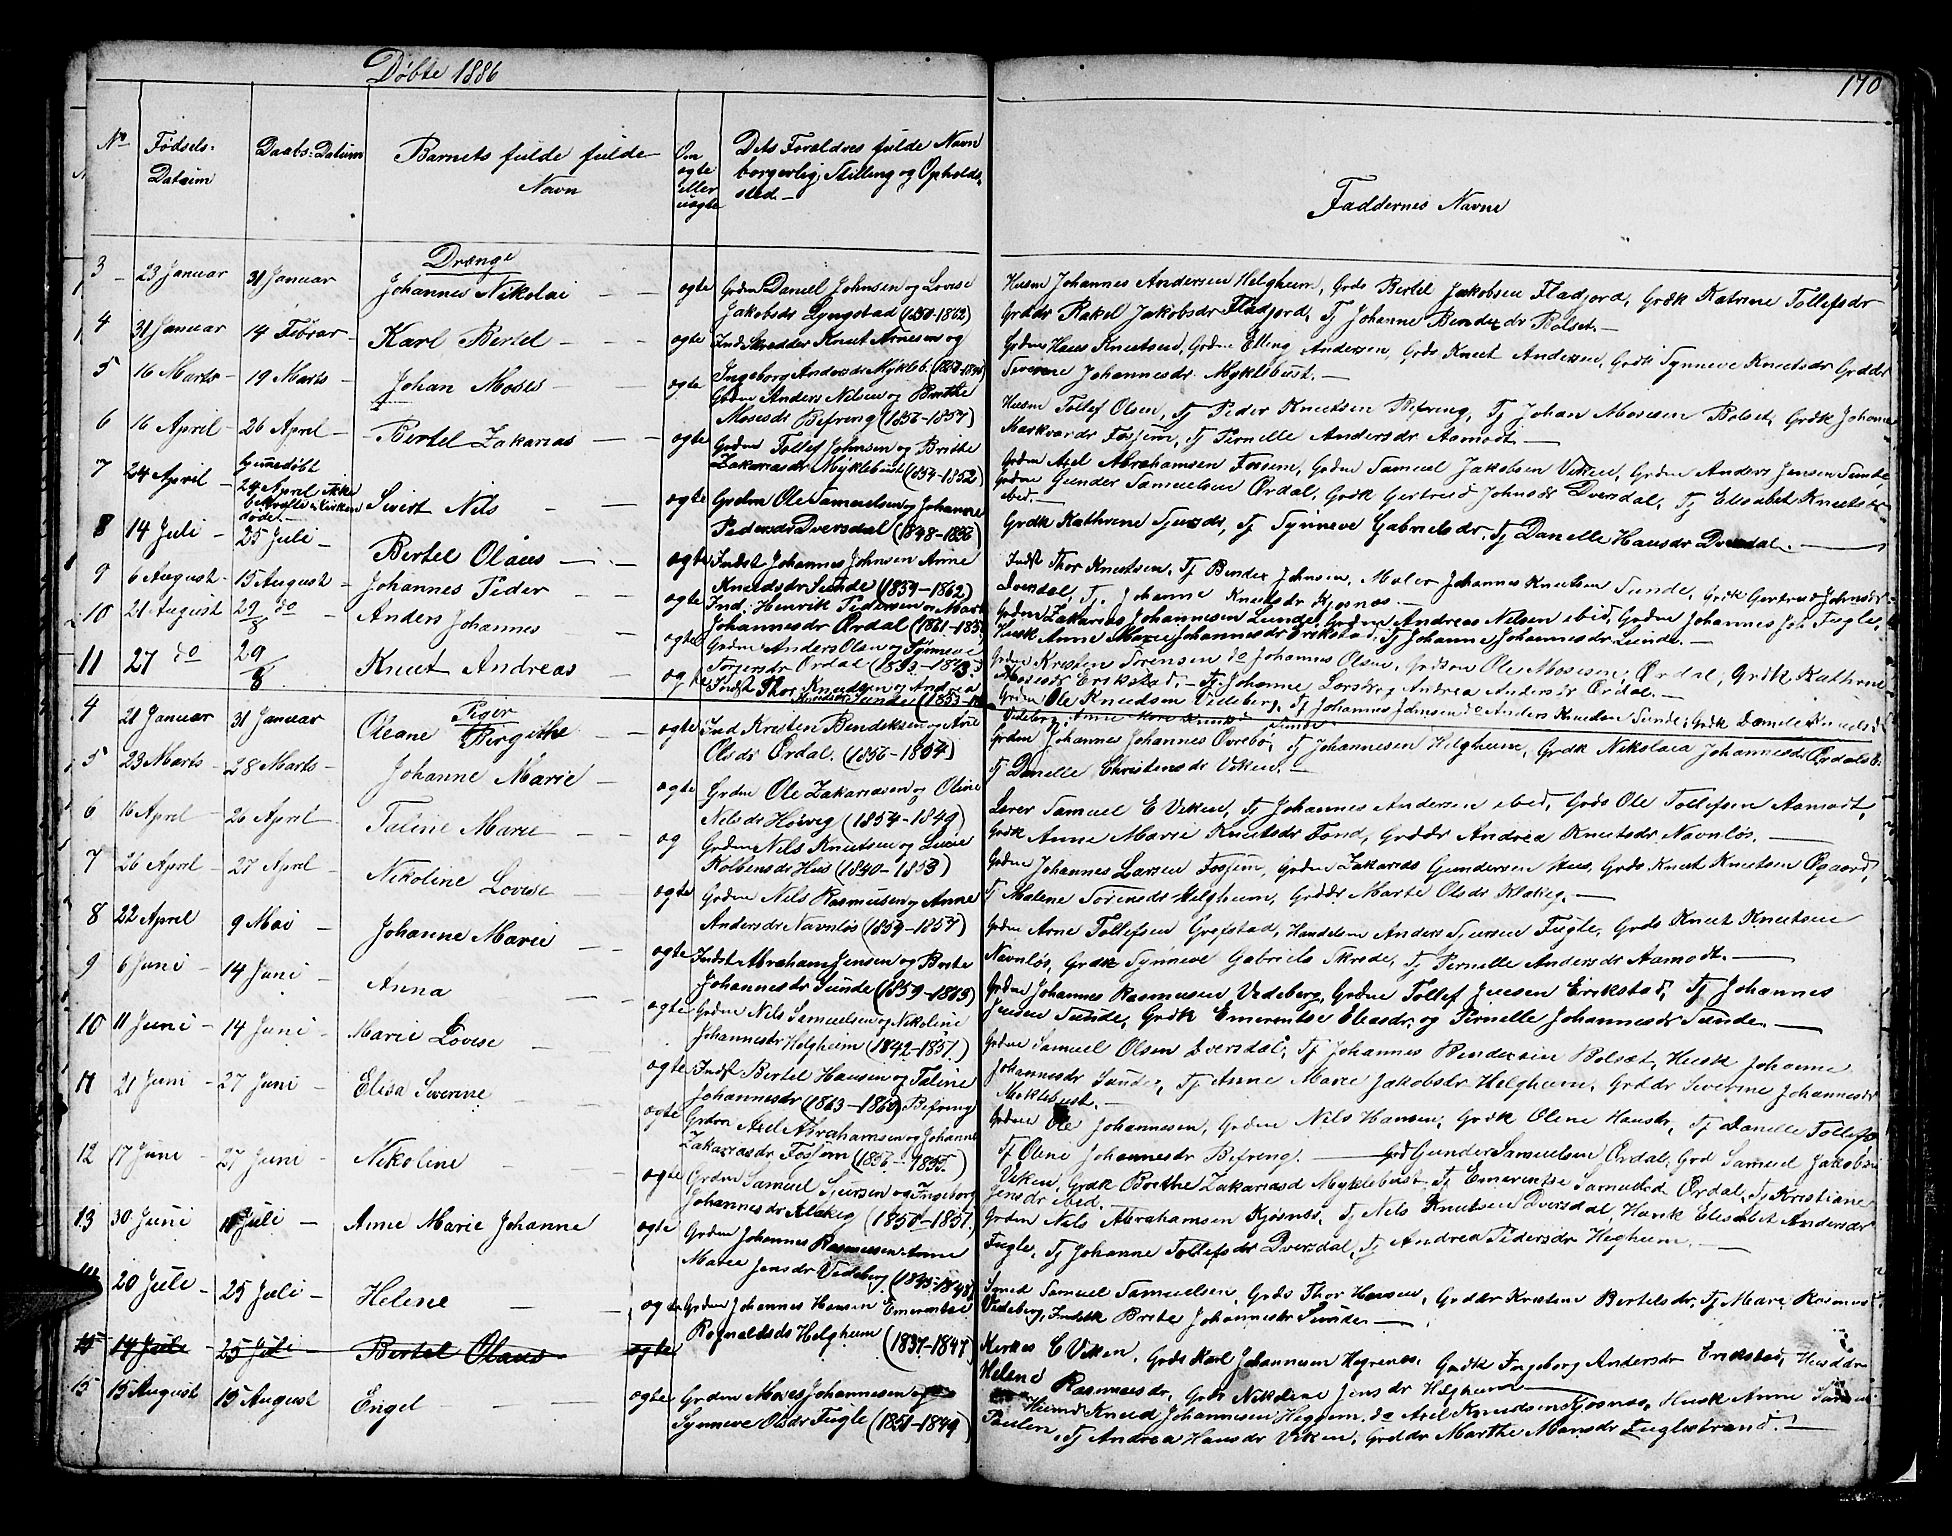 Døbte 1886
170
No
Fødsels-
Datum
Daabs-Datum
Barnets fulde fulde
Navn
Om
ægte
eller
uægte
Dets Forældres fulde Navn
borgerlig Stilling og Opholds-
sted.-
Faddernes Navne
Drænge
3 - 23 Januar 31 Januar Johannes Nikolai - - ægte Grdm Daniel Johnsen og Lovise
Jakobsdr Lyngstad (1850-1862)
Husm Johannes Andersen Helgheim, Grds Bertel Jakobsen Fladjord, Grdk Katrine Tollefsdr
Grddr Rakel Jakobsdr Fladjord, Tj Johanne Bendixdr Bolset.-
4 31 Januar - 14 Februar - Karl Bertel - - - ægte Ind Skredder Knut Arnesen og
Ingeborg Andersdr Mykleb.
Grdm Hans Knutsen, Grdm Elling Andersen, Grds Knut Andersen, Grdk Synneve Knutsdr Grddr
Severine Johannesdr Myklebust.-
5 16 Marts - 19 Marts - Johan Moses - - ægte Grdm Anders Nilsen og Brithe
Mosesdr Befreng (1856-1857)
Husm Tollef Olsen, Tj Peder Knutsen Befreng, Tj Johan Mosesen Bolset, Grdk Johanne
Markvardr Fosjem, Tj Pernelle Andersdr Aamodt.-
6 16 April - 26 April - Bertel Zakarias - - ægte Grdm Tollef Johnsen og Brithe
Zakariasdr Myklebust (1854-1852)
Grdm Axel Abrahamsen Fossem, Grdm Samuel Jakobsen Viken, Grdm Anders Jensen Sunde
7 24 April - hjemmedøbt
24 April ikke
bekræftet i Kirken
døde - Sivert Nils - - ægte Grdm Ole Samuelsen og Johanne
Pedersdr Dversdal (1848-1856)
Grdm Gunder Samuelsen Ørdal, Grdk Gertrud Johnsdr Dversdal, Tj Elisabet Knutsdr
ibid.-
8 14 Juli - 25 Juli - Bertel Olaus - - ægte Indst Johannes Johnsen Anne
Knudsdr Sunde (1859-1862)
Grdk Kathrine Sjursdr, Tj Synneve Gabrielsdr. Tj Danielle Hansdr Dversdal.-
9 6 August - 15 August - Johannes Peder - - ægte Ind. Henrik Pedersen og Marte
Johannesdr Ørdal
Indst Thor Knutsen. Tj Bendix Johnsen, Maler Johannes Knutsen Sunde, Grdk Gertrud Johnsdr
Dvesdal, Tj. Johanne Knutsdr Kjosnæs.-
10 21 August 29 do
8 Anders Johannes - ægte Grdm Anders Olsen og Synneve
Torgersdr Ørdal
Grdm Zakarias Johannesen Lunde, Grdm Andreas Nilsen ibid, Grdm Johannes Joh Fugle,
Husk Anne Marie Johannesdr Erikstad, Tj Johanne Johannesdr Lunde.-
11 27 do 29
8 Knut Andreas - ægte Indst Thor Knudsen og Andrea
Grdm Kristen Sørensen do Johannes Olsen, Grdson Ole Mosesen, Ørdal, Grdk Kathrine
Mosesdr Erikstad.- Tj. Johanne Andrea Andersdr Ørdal.-
Grdm Ole Knudsen Videberg, Tj Johannes Johnsen do Anders Knudsen Sunde, Grdk Danielle Knudsdr
Videberg,
Piger
4 21 Januar 31 Januar Oleane Birgithe - - ægte Ind Kristen Bendiksen og Ane
Olsdr Ørdal. (1856-1857)
Grdm Johannes Johannes Øvrebø, Tj Johannesen Helgheim, Grdk Nikolaia Johannesdr
Tj Danielle Christensdr Viken.-
5 23 Marts - 28 Marts - Johanne Marie - ægte Grdm Ole Zakariasen og Oline
Nilsdr Høivig (1854-1849)
Lærer Samuel E Viken, Tj Johannes Andersen ibid, Grds Ole Tollefsen Aamodt,
Grdk Anne Marie Knutsdr Fond, Grddr Andrea Knutsdr Navnløs.-
6 16 April - 26 April - Taline Marie - - æg Grdm Nils Knutsen og Lucie
Kolbensdr Hus (1840-1853)
Grdm Johannes Larsen Fosjem, Grdm Zakarias Gundersen Hus, Grds Knut Knutsen Øgaard,
Tj Malene Sørensdr Helgheim, Grddr Marte Olsdr Klakeg.-
7 26 April - 27 April - Nikoline Lovise - - ægte Grdm Nils Rasmusen og Anne
Andersdr Navnløs (1859-1857)
Grdm Arne Tollefsen Grefstad, Handelsm Anders Sjursen Fugle, Grds Knut Knutsen
Navnløs, Grdk Synneve Gabriels Skrede, Tj Pernelle Andersdr Aamodt.-
8 22 April 9 Mai - Johanne Marie - - ægte Indst Abraham Jensen og Brite
Johannesdr Sunde (1859-1863)
Grdm Johannes Rasmusen Videberg, Grdm Tollef Jensen Erikstad, Tj Johannes
Jensen Sunde, Grdk Emerentse Eliasdr og Pernelle Johannesdr Sunde.-
9 6 Juni - 14 Juni - Anna - - ægte Grdm Nils Samuelsen og Nikoline
Johannesdr Helgheim (1842-1851)
Grdm Samuel Olsen Dversdal, Tj Johannes Bendixsen Bolsæt, Husk Johanne
Johannesdr Sunde, Tj Anne Marie Jakobsdr Helgheim, Grddr Severine Johannesdr
Myklebust.-
10 11 Juni - 14 Juni - Marie Lovise - - ægte Indst Bertel Hansen og Taline
Johannesdr (1863-1860) Befreng
Grdm Ole Johannesen, Grdm Nils Hansen, Grdk Oline Hansdr, Tj Danielle Tollefsdr
Tj Oline Johannesdr Befreng.-
11 21 Juni - 27 Juni - Elisa Severine - - ægte Grdm Axel Abrahamsen og Johanne
Zakariasdr Fosjem (1856-1855)
Grd Gunder Samuelsen Ørdal, Grd Samuel Jakobsen
Viken, Grdk Brethe Zakariasd Myklebust, Tj Emerentse Samuelsd Ørdal, Tj Kristiane
Jensdr ibed.
12 17 Juni - 27 Juni - Nikoline - - ægte Grdm Samuel Sjursen og Ingeborg
Johannesdr Klakeg (1850-1851)
Grdm Nils Abrahamsen Kjøsnes, Tj Nils Knutsen Dversdal, Husk Elisabet Andersdr
Fugle, Tj Johanne Tollefsdr Dversdal, Tj Andrea Pedersdr Hegheim.-
13 30 Juni Juli - Anne Marie Johanne ægte Grdm Johannes Rasmusen Anne
Marie Jensdr Videberg (1843-1848)
Smed Samuel Samuelsen, Grds Thor Hansen, Grddr Kristine Bertelsdr, Tj Marie Rasmus
Videberg, Indstk Brite Johannesdr Sunde.-
20 Juli - 25 Juli - Helene - - ægte Grdm Johannes Hansen Emerentse
Rognaldsdr Helgheim (1837-1847)
Kirkes E Viken, Grds Karl Johannesen Hegrenes, Grdk Ingeborg Andersdr Erikstad, Husddr
Helene Rasmusdr, Grdr Nikoline Jensdr Helgheim-
15 14 Juli 25 Juli Bertel Olaus ægte
15 15 August 15 August Engel - - ægte Grdm Moses Johannesen og
Synneve Olsdr Fugle (1851-1849)
Husmd Knud Johannesen Heggem. do Axel Knudsen Kjosnæs, Husk Anne
Paulen, Tj Andrea Hansdr Viken, Grddr Marthe Monsdr Fuglestrand.-